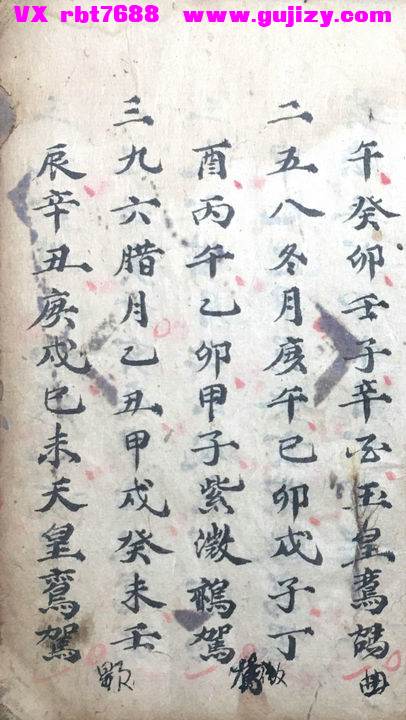 VX rbt7688 www.gujizy.com
午癸卯壬子辛酉玉皇鸞
二五八冬月庚午己卯戊子丁
酉丙午乙卯甲子紫微駕
三九六腊月乙丑甲戌癸未壬
辰辛丑庚戌己未天皇鸞駕